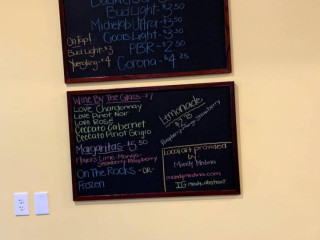 Bud Light $3.50
Michelob Ultra $3.50
Coors Light $3.50
PBR $2.50
Corona $4.25
On Tap!
Bud Light $3
Yuengling $4
Wine By The Glass $7
Love Chardonnay
Love Pinot Noir
Love Rosé
Ceccato Cabernet
Ceccato Pinot Grigio
Margaritas $5.50
Flavors: Lime, Mango,
Strawberry, Raspberry
On The Rocks -OR-
Frozen
Lemonade
Raspberry Mango Strawberry
Local art provided
by
Mandy Medina